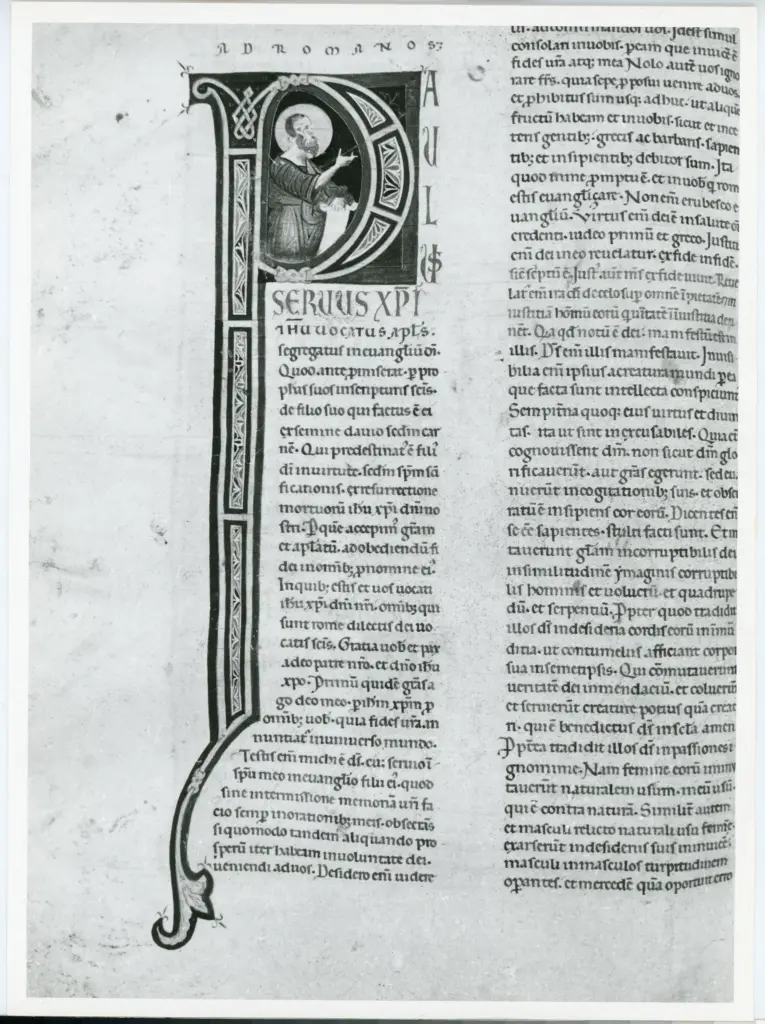 AD ROMANOS:
PAULUS
SERUUS XP̅I
IH̅U UOCATUS AP̅LS.
segregatus in euangliū dī.
Quod ante p̱miserat. p̱ pro
phas suos in scripturis sc̅is.
de filio suo qui factus ē ei
ex semine dauid sc̅dm car
nē. Qui predestinat᷒ ē fili᷒
dī in uirtute. sc̅dm sp̅m sc̅i
ficationis. ex resurrectione
mortuorū ih̅u xp̅i dn̅i no
stri. P̱ que accepim᷒ gr̅am
et ap̅latū. ad obediendū fi
dei in omīb; p̱ nomine ei᷒.
In quib; estis et uos uocati
ih̅u xp̅i dn̅i nr̅i. omīb; qui
sunt rome dilectis dei uo
catis sc̅is. Gratia uob̅ et pax
a deo patre nr̅o. et dn̅o ih̅u
xp̅o. Primū quidē gr̅as a
go deo meo. p̱ ih̅m xp̅m p̱
omīb; uob̅. quia fides ur̅a an
nuntiat᷒ in uniuerso mundo.
Testis em̅ michi ē ds̅. cui seruio ī
sp̅u meo in euanglio filii ei᷒. quod
sine intermissione memoriā ur̅i fa
cio semp̱ in orationib; meis. obsecr̅as
si quomodo tandem aliquando pro
sperū iter habeam in uoluntate dei.
ueniendi ad uos. Desidero em̅ uidere
consolari in uobis. p̱ eam que inuicē ē
fidēs ur̅a atq; mea Nolo autē uos igno
rare frs̅. quia sepe p̱posui uenire ad uos.
et p̱hibitus sum usq; adhuc. ut aliquē
fructū habeam et in uobis. sicut et in ce
teris gentib;. grecis ac barbaris. sapien
tib; et insipientib; debitor sum. Ita
quod in me p̱mptū ē. et in uob̅ q̱ rom
estis euanglicare. Non em̅ erubesco e
uangliū. Virtus em̅ dei ē in salutē oī
credenti. iudeo primū et greco. Justitia
em̅ dei in eo reuelatur. ex fide in fidē.
sic̅ sc̅ptū ē. Just᷒ aut̅ m̅s ex fide uiuit. Reue
lat᷒ em̅ ira dī de celo sup̱ omnē īpietatem
iustitiā hōmū eorū qui ūitatē ī iniustitia deti
nēt. Quia qd̅ notū ē dei. manifestū est in
illis. Ds̅ em̅ illis manifestauit. Inuisi
bilia em̅ ipsius a creatura mundi p̱ ea
que facta sunt intellecta conspiciunt᷒
Sempit̅na quoq; eius uirtus et diuini
tas. ita ut sint inexcusabiles. Quia cū
cognouissent dm̅. non sicut dm̅ glo
rificauerūt. aut gr̅as egerunt. sed eua
nuerūt in cogitationib; suis. et obscu
ratū ē insipiens cor eorū. Dicentes em̅
se eē sapientes. stulti facti sunt. Et m
tauerunt gl̅am incorruptibilis dei
in similitudinē ymaginis corruptibi
lis hominis et uolucrū. et quadrupe
dū. et serpentiū. P̱pter quod tradidit
illos ds̅ in desideria cordis eorū in inmū
ditia. ut contumeliis afficiant corpora
sua in semetipsis. Qui cōmutauerunt
ueritatē dei in mendaciū. et coluerūt
et seruierūt creature potius quā creat
ri. qui ē benedictus ds̅ in secl̅a amen
P̱pt̅ea tradidit illos ds̅ in passiones i
gnominie. Nam femine eorū inmu
tauerūt naturalem usum. in eū usū.
qui ē contra naturā. Similit̅ autem
et masculi relicto naturali usu femine.
exarserūt in desideriis suis inuicē.
masculi in masculos turpitudinem
op̱antes. et mercedē quā oportuit erro